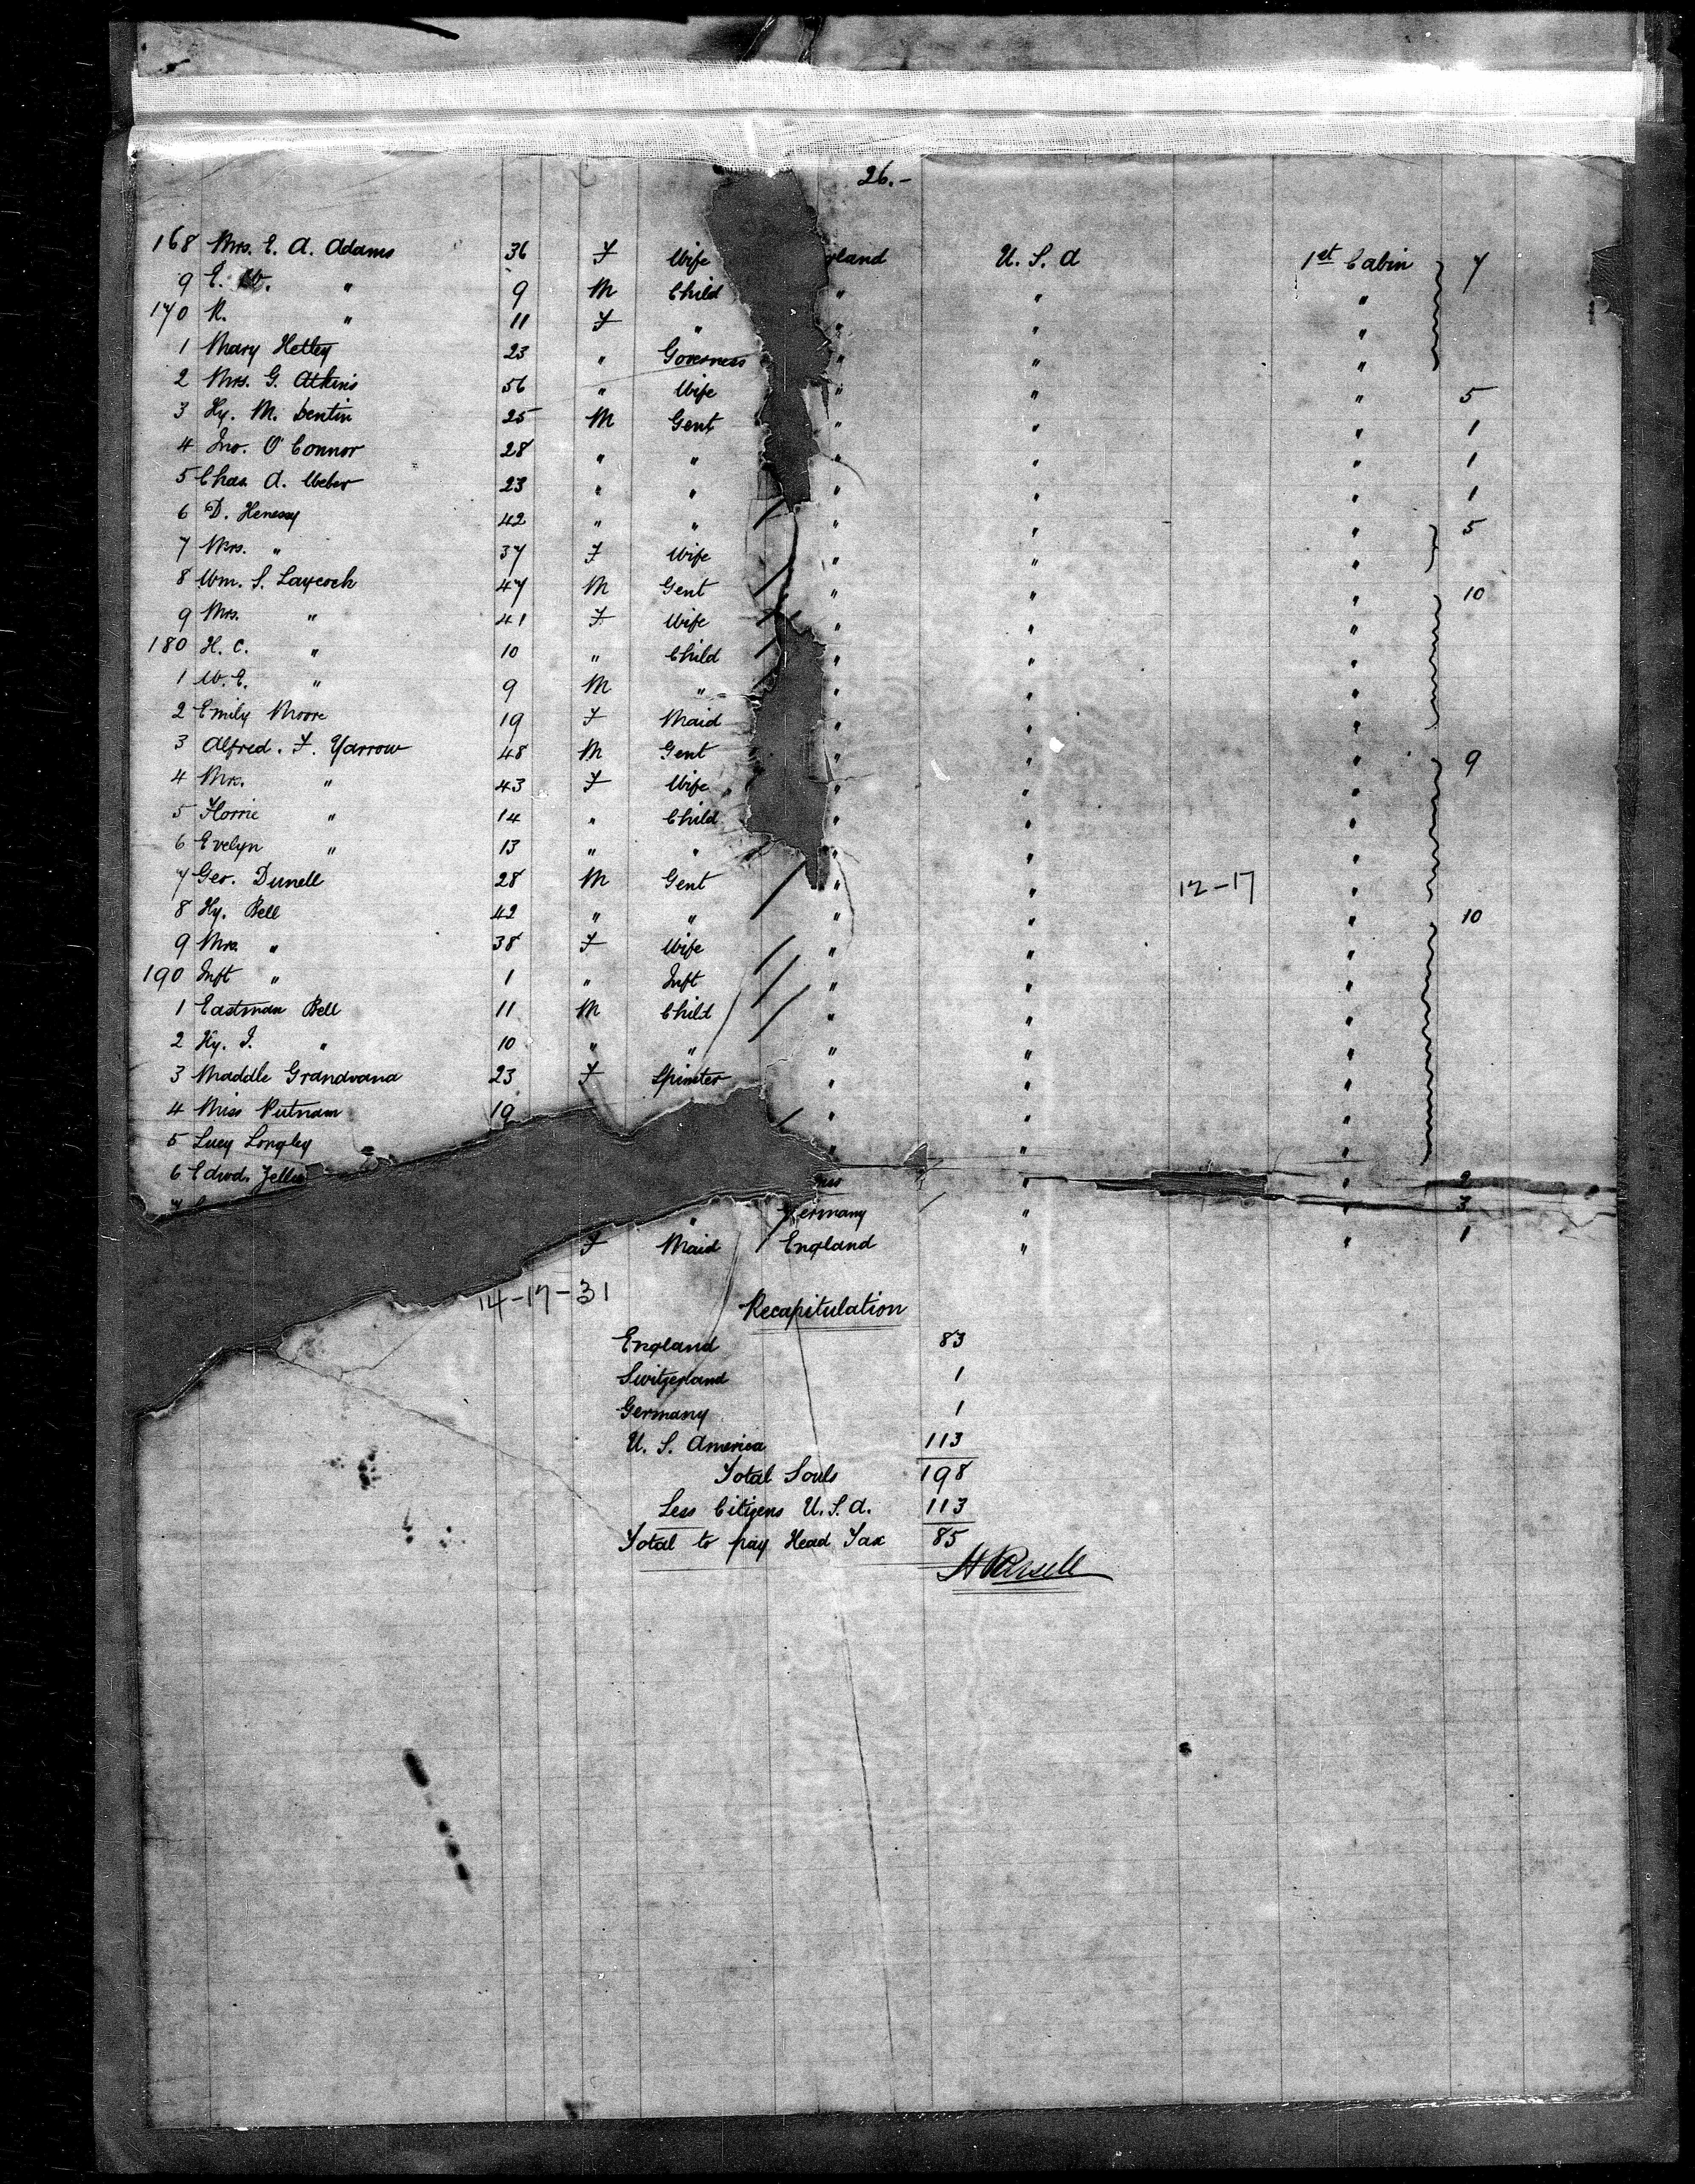 26.-
168 Mrs. E. A. Adams 36 F Wife gland U. S. A 1st Cabin 7
9 E. W. " 9 M Child " " "
170 R. " 11 F " " " "
1 Mary Hetley 23 " Governess " " "
2 Mrs. G. Atkins 56 " Wife " " " 5
3 Hy. M. Dentin 25 M Gent " " " 1
4 Jno. O'Connor 28 " " " " " 1
5 Chas. A. Weber 23 " " " " " 1
6 D. Henessy 42 " " " " " 5
7 Mrs. " 37 F Wife " " "
8 Wm. S. Laycock 47 M Gent " " " 10
9 Mrs. " 41 F Wife " " "
180 H. C. " 10 " Child " " "
1 W. E. " 9 M " " " "
2 Emily Moore 19 F Maid " " "
3 Alfred. F. Yarrow 48 M Gent " " " 9
4 Mrs. " 43 F Wife " " "
5 Florrie " 14 " Child " " "
6 Evelyn " 13 " " " " "
7 Geo. Dunell 28 M Gent " " 12-17 "
8 Hy. Bell 42 " " " " " 10
9 Mrs. " 38 F Wife " " "
190 Inft " 1 " Inft " " "
1 Eastman Bell 11 M Child " " "
2 Hy. J. " 10 " " " " "
3 Maddle Grandvana 23 F Spinster " " "
4 Miss Putnam 19 " " "
5 Lucy Longley " " "
6 Edwd. Jellie " " 2
7 " Germany " " 3
F Maid England " " 1
14-17-31
Recapitulation
England 83
Switzerland 1
Germany 1
U. S. America 113
Total Souls 198
Less Citizens U. S. A. 113
Total to pay Head Tax 85